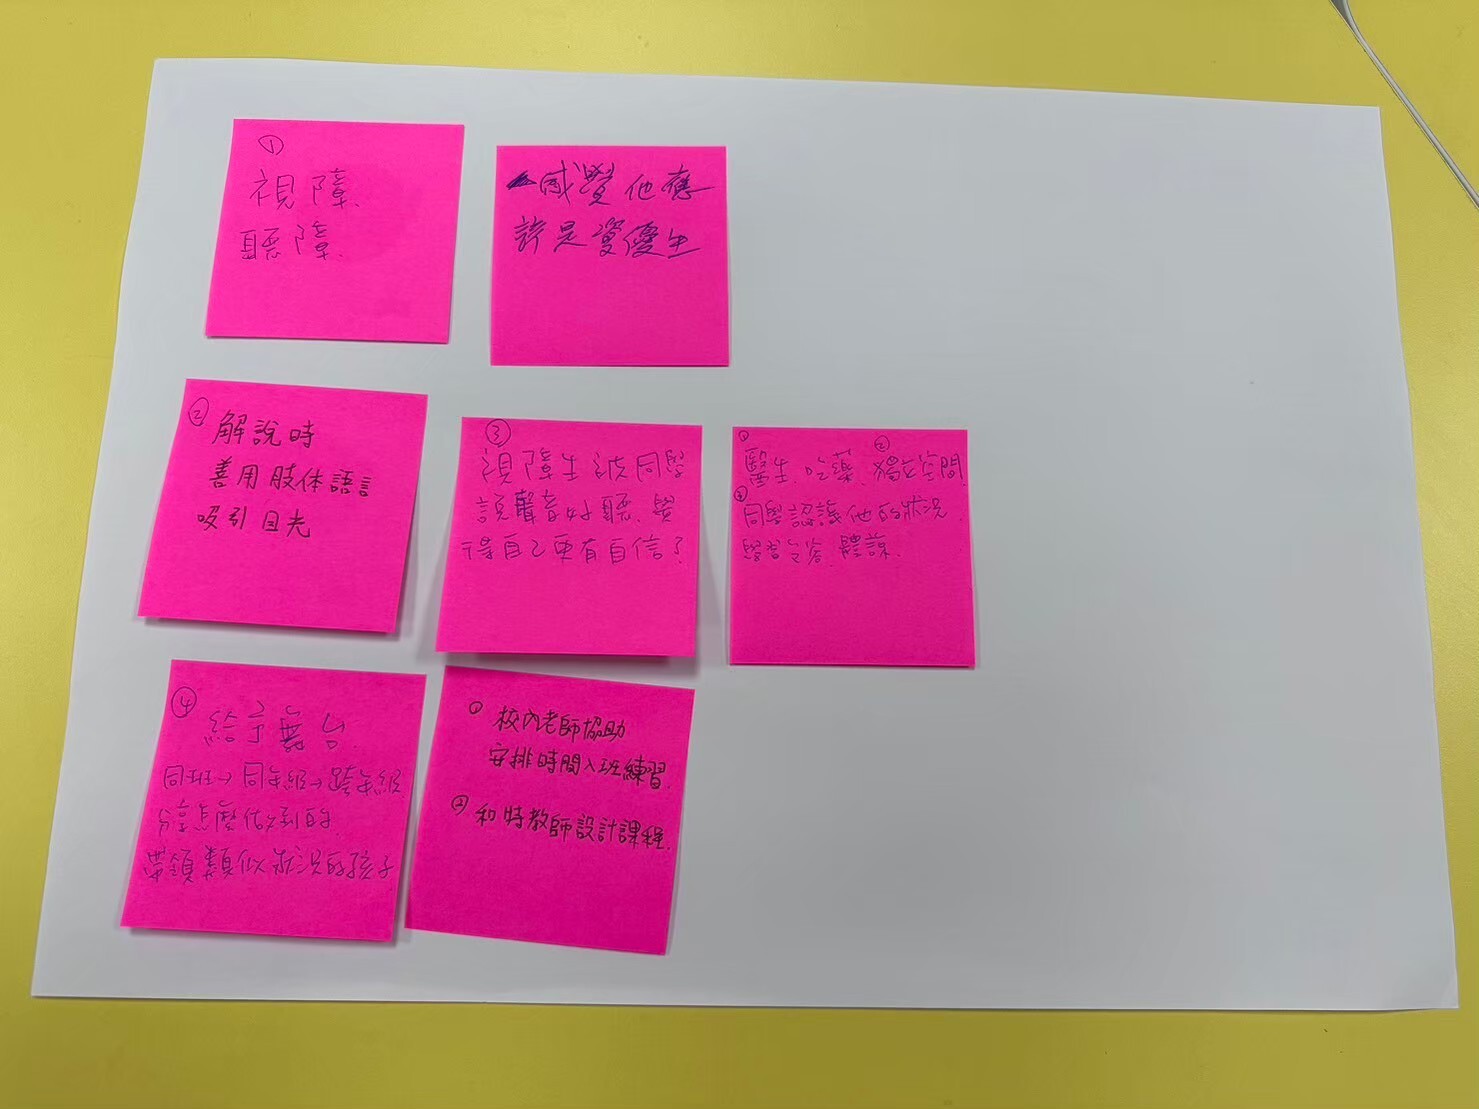 ①
視障、
聽障、
感覺他應
該是資優生
②
解說時
善用肢体語言
吸引目光
③
視障生被同學
說聲音好聽、覺
得自己更有自信了
① ②
醫生、吃藥、獨立空間
③
同學認識他的狀況、
學習包容、體諒、
④
給予舞台
同班→同年級→跨年級
分享
帶領類似狀況的孩子
① 校內老師協助
安排時間入班練習、
② 和特教師設計課程、